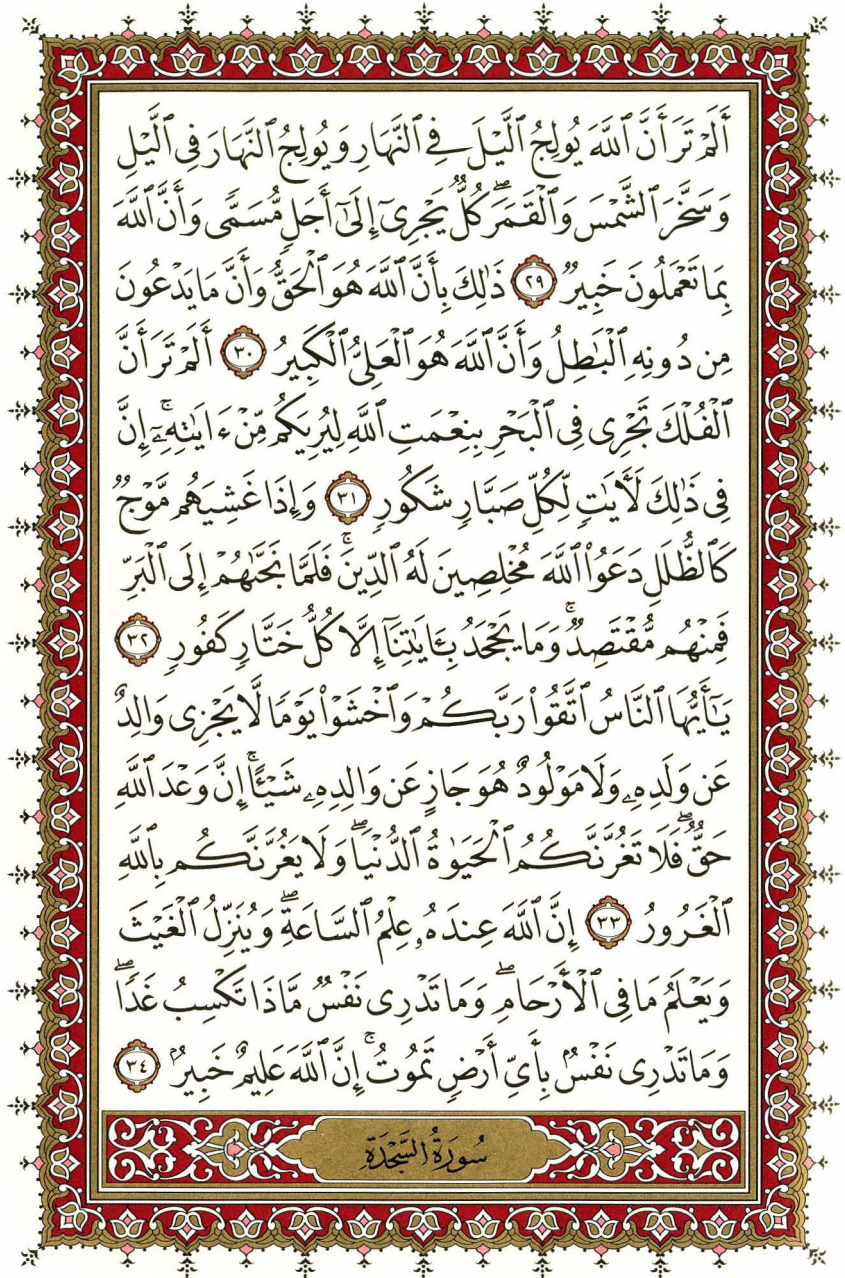 أَلَمْ تَرَ أَنَّ ٱللَّهَ يُولِجُ ٱلَّيْلَ فِي ٱلنَّهَارِ وَيُولِجُ ٱلنَّهَارَ فِي ٱلَّيْلِ
وَسَخَّرَ ٱلشَّمْسَ وَٱلْقَمَرَۖ كُلٌّ يَجْرِيٓ إِلَىٰٓ أَجَلٍ مُّسَمًّى وَأَنَّ ٱللَّهَ
بِمَا تَعْمَلُونَ خَبِيرٌ ٢٩ ذَٰلِكَ بِأَنَّ ٱللَّهَ هُوَ ٱلْحَقُّ وَأَنَّ مَا يَدْعُونَ
مِن دُونِهِ ٱلْبَٰطِلُ وَأَنَّ ٱللَّهَ هُوَ ٱلْعَلِيُّ ٱلْكَبِيرُ ٣٠ أَلَمْ تَرَ أَنَّ
ٱلْفُلْكَ تَجْرِي فِي ٱلْبَحْرِ بِنِعْمَتِ ٱللَّهِ لِيُرِيَكُم مِّنْ ءَايَٰتِهِۦٓۚ إِنَّ
فِي ذَٰلِكَ لَأَيَٰتٍ لِّكُلِّ صَبَّارٍ شَكُورٍ ٣١ وَإِذَا غَشِيَهُم مَّوْجٌ
كَٱلظُّلَلِ دَعَوُا۟ ٱللَّهَ مُخْلِصِينَ لَهُ ٱلدِّينَۚ فَلَمَّا نَجَّىٰهُمْ إِلَى ٱلْبَرِّ
فَمِنْهُم مُّقْتَصِدٌۚ وَمَا يَجْحَدُ بِـَٔايَٰتِنَآ إِلَّا كُلُّ خَتَّارٍ كَفُورٍ ٣٢
يَٰٓأَيُّهَا ٱلنَّاسُ ٱتَّقُوا۟ رَبَّكُمْ وَٱخْشَوْا۟ يَوْمًا لَّا يَجْزِي وَالِدٌ
عَن وَلَدِهِۦ وَلَا مَوْلُودٌ هُوَ جَازٍ عَن وَالِدِهِۦ شَيْـًٔاۚ إِنَّ وَعْدَ ٱللَّهِ
حَقٌّۖ فَلَا تَغُرَّنَّكُمُ ٱلْحَيَوٰةُ ٱلدُّنْيَاۖ وَلَا يَغُرَّنَّكُم بِٱللَّهِ
ٱلْغَرُورُ ٣٣ إِنَّ ٱللَّهَ عِندَهُۥ عِلْمُ ٱلسَّاعَةِۖ وَيُنَزِّلُ ٱلْغَيْثَ
وَيَعْلَمُ مَا فِي ٱلْأَرْحَامِۖ وَمَا تَدْرِي نَفْسٌ مَّاذَا تَكْسِبُ غَدًاۖ
وَمَا تَدْرِي نَفْسٌۢ بِأَيِّ أَرْضٍ تَمُوتُۚ إِنَّ ٱللَّهَ عَلِيمٌ خَبِيرٌۢ ٣٤
سُورَةُ السَّجْدَةِ